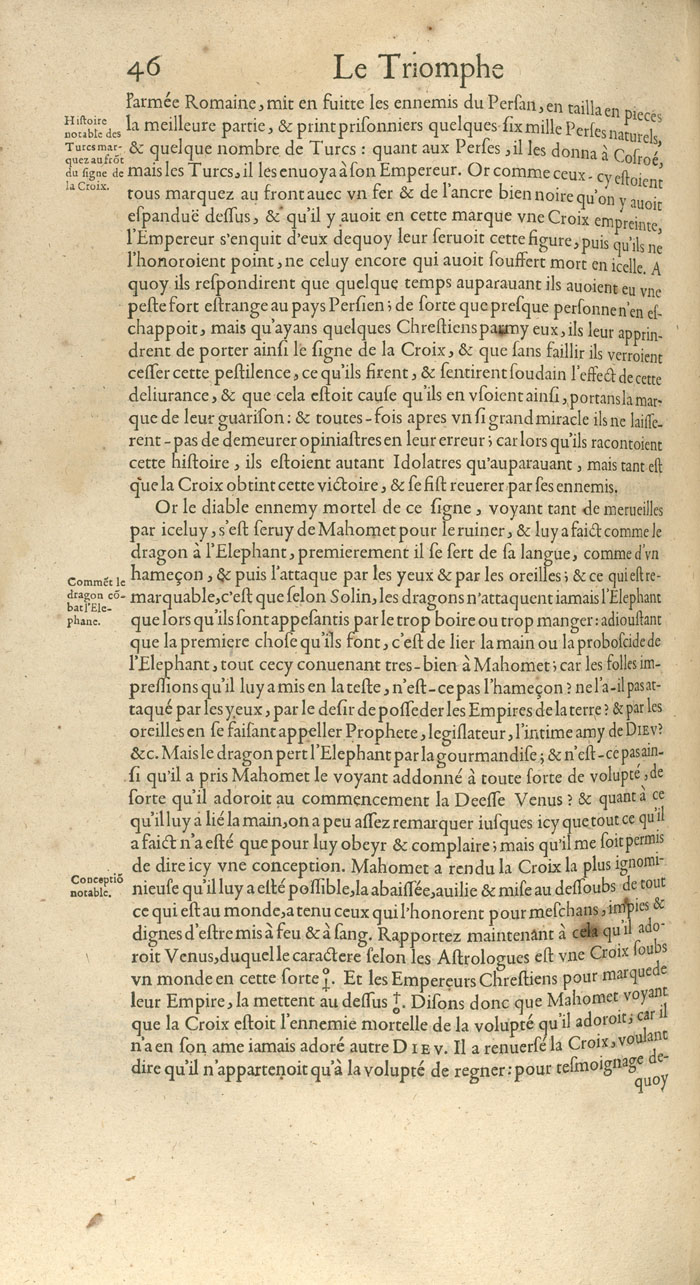 46 Le Triomphe
l'armée Romaine, mit en fuitte les ennemis du Perſan, en tailla en pieces
Hiſtoire
notable des
Turcs mar-
quez au frõt
du ſigne de
la Croix.
la meilleure partie, & print priſonniers quelques ſix mille Perſes naturels,
& quelque nombre de Turcs : quant aux Perſes, il les donna à Coſroé,
mais les Turcs, il les enuoya à ſon Empereur. Or comme ceux-cy eſtoient
tous marquez au front auec vn fer & de l'ancre bien noire qu'on y auoit
eſpanduë deſſus, & qu'il y auoit en cette marque vne Croix empreinte,
l'Empereur s'enquit d'eux dequoy leur ſeruoit cette figure, puis qu'ils ne
l'honoroient point, ne celuy encore qui auoit ſouffert mort en icelle. A
quoy ils reſpondirent que quelque temps auparauant ils auoient eu vne
peſte fort eſtrange au pays Perſien ; de ſorte que preſque perſonne n'en eſ-
chappoit, mais qu'ayans quelques Chreſtiens parmy eux, ils leur apprin-
drent de porter ainſi le ſigne de la Croix, & que ſans faillir ils verroient
ceſſer cette peſtilence, ce qu'ils firent, & ſentirent ſoudain l'effect de cette
deliurance, & que cela eſtoit cauſe qu'ils en vſoient ainſi, portans la mar-
que de leur guariſon : & toutes-fois apres vn ſi grand miracle ils ne laiſſe-
rent-pas de demeurer opiniaſtres en leur erreur ; car lors qu'ils racontoient
cette hiſtoire, ils eſtoient autant Idolatres qu'auparauant, mais tant eſt
que la Croix obtint cette victoire, & ſe fiſt reuerer par ſes ennemis.
Or le diable ennemy mortel de ce ſigne, voyant tant de merueilles
par iceluy, s'eſt ſeruy de Mahomet pour le ruiner, & luy a faict comme le
dragon à l'Elephant, premierement il ſe ſert de ſa langue, comme d'vn
Commẽt le
dragon cõ-
bat l'Ele-
phant.
hameçon, & puis l'attaque par les yeux & par les oreilles ; & ce qui eſt re-
marquable, c'eſt que ſelon Solin, les dragons n'attaquent iamais l'Elephant
que lors qu'ils ſont appeſantis par le trop boire ou trop manger : adiouſtant
que la premiere choſe qu'ils font, c'eſt de lier la main ou la proboſcide de
l'Elephant, tout cecy conuenant tres-bien à Mahomet ; car les folles im-
preſſions qu'il luy a mis en la teſte, n'eſt-ce pas l'hameçon ? ne l'a-il pas at-
taqué par les yeux, par le deſir de poſſeder les Empires de la terre ? & par les
oreilles en ſe faiſant appeller Prophete, legiſlateur, l'intime amy de DIEV ?
&c. Mais le dragon pert l'Elephant par la gourmandiſe ; & n'eſt-ce pas ain-
ſi qu'il a pris Mahomet le voyant addonné à toute ſorte de volupté, de
ſorte qu'il adoroit au commencement la Deeſſe Venus ? & quant à ce
qu'il luy a lié la main, on a peu aſſez remarquer iuſques icy que tout ce qu'il
a faict n'a eſté que pour luy obeyr & complaire ; mais qu'il me ſoit permis
de dire icy vne conception. Mahomet a rendu la Croix la plus ignomi-
Conceptiõ
notable.
nieuſe qu'il luy a eſté poſſible, la abaiſſée, auilie & miſe au deſſoubs de tout
ce qui eſt au monde, a tenu ceux qui l'honorent pour meſchans, impies &
dignes d'eſtre mis à feu & à ſang. Rapportez maintenant à cela qu'il ado-
roit Venus, duquel le caractere ſelon les Aſtrologues eſt vne Croix ſoubs
vn monde en cette ſorte ♀. Et les Empereurs Chreſtiens pour marque de
leur Empire, la mettent au deſſus ♁. Diſons donc que Mahomet voyant
que la Croix eſtoit l'ennemie mortelle de la volupté qu'il adoroit, car il
n'a en ſon ame iamais adoré autre DIEV. Il a renuerſé la Croix, voulant
dire qu'il n'appartenoit qu'à la volupté de regner : pour teſmoignage de-
quoy